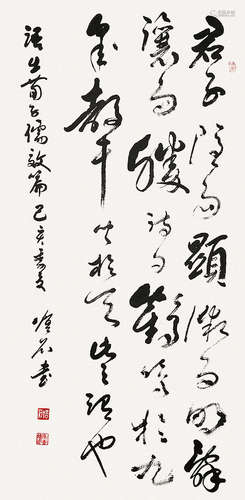 君子隱而顯微而明辭
讓而勝詩曰鶴鳴於九
皋聲聞於天此之謂也
語出荀子儒效篇己亥
書